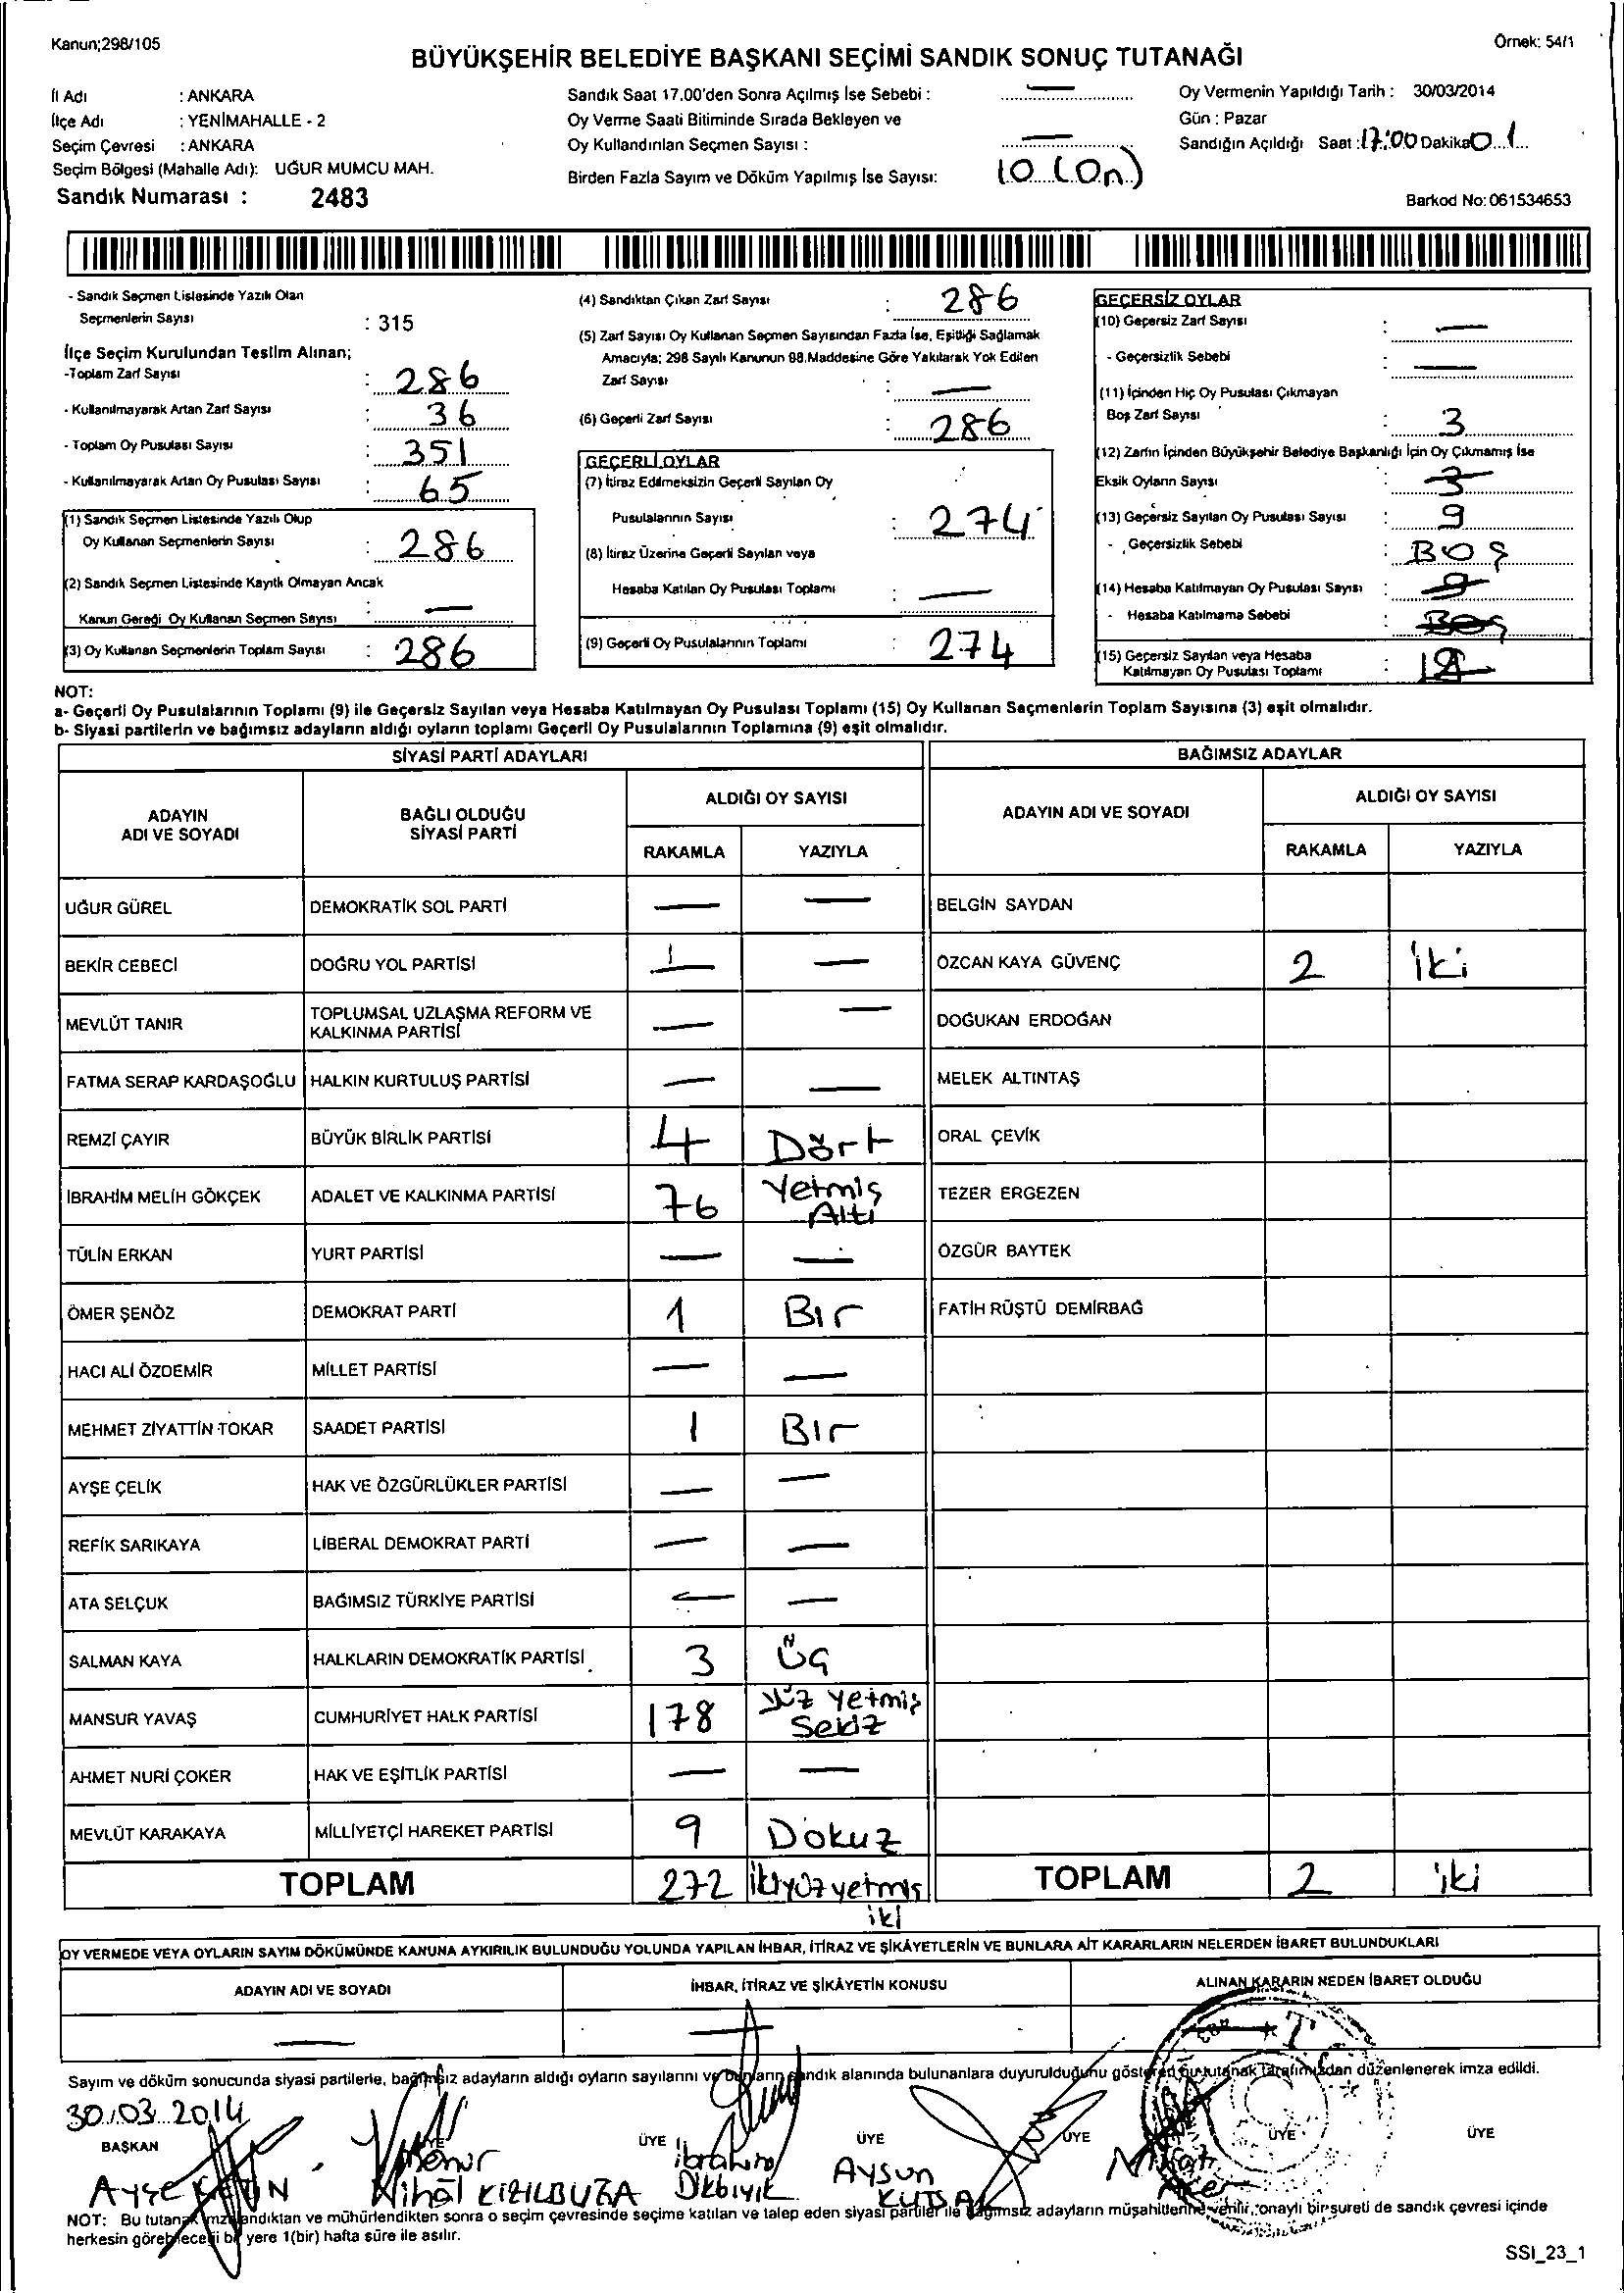 Kanun;298/105
Örnek: 54/1
BÜYÜKŞEHİR BELEDİYE BAŞKANI SEÇİMİ SANDIK SONUÇ TUTANAĞI
İl Adı : ANKARA
İlçe Adı : YENİMAHALLE - 2
Seçim Çevresi : ANKARA
Seçim Bölgesi (Mahalle Adı): UĞUR MUMCU MAH.
Sandık Numarası : 2483
Sandık Saat 17.00'den Sonra Açılmış İse Sebebi : —
Oy Verme Saati Bitiminde Sırada Bekleyen ve
Oy Kullandırılan Seçmen Sayısı : —
Birden Fazla Sayım ve Döküm Yapılmış İse Sayısı: 10 (On)
Oy Vermenin Yapıldığı Tarih : 30/03/2014
Gün : Pazar
Sandığın Açıldığı Saat : 17:00 Dakika 01
Barkod No: 061534653
- Sandık Seçmen Listesinde Yazılı Olan
Seçmenlerin Sayısı : 315
İlçe Seçim Kurulundan Teslim Alınan;
-Toplam Zarf Sayısı : 286
- Kullanılmayarak Artan Zarf Sayısı : 36
- Toplam Oy Pusulası Sayısı : 351
- Kullanılmayarak Artan Oy Pusulası Sayısı : 65
(1) Sandık Seçmen Listesinde Yazılı Olup
Oy Kullanan Seçmenlerin Sayısı : 286
(2) Sandık Seçmen Listesinde Kayıtlı Olmayan Ancak
Kanun Gereği Oy Kullanan Seçmen Sayısı : —
(3) Oy Kullanan Seçmenlerin Toplam Sayısı : 286
(4) Sandıktan Çıkan Zarf Sayısı : 286
(5) Zarf Sayısı Oy Kullanan Seçmen Sayısından Fazla İse, Eşitliği Sağlamak
Amacıyla; 298 Sayılı Kanunun 98.Maddesine Göre Yakılarak Yok Edilen
Zarf Sayısı : —
(6) Geçerli Zarf Sayısı : 286
GEÇERLİ OYLAR
(7) İtiraz Edilmeksizin Geçerli Sayılan Oy
Pusulalarının Sayısı : 274
(8) İtiraz Üzerine Geçerli Sayılan veya
Hesaba Katılan Oy Pusulası Toplamı : —
(9) Geçerli Oy Pusulalarının Toplamı : 274
GEÇERSİZ OYLAR
(10) Geçersiz Zarf Sayısı : —
- Geçersizlik Sebebi : —
(11) İçinden Hiç Oy Pusulası Çıkmayan
Boş Zarf Sayısı : 3
(12) Zarfın İçinden Büyükşehir Belediye Başkanlığı İçin Oy Çıkmamış İse
Eksik Oyların Sayısı : 3
(13) Geçersiz Sayılan Oy Pusulası Sayısı : 9
- Geçersizlik Sebebi : BOŞ
(14) Hesaba Katılmayan Oy Pusulası Sayısı : 9
- Hesaba Katılmama Sebebi : Boş
(15) Geçersiz Sayılan veya Hesaba
Katılmayan Oy Pusulası Toplamı :
NOT:
a- Geçerli Oy Pusulalarının Toplamı (9) ile Geçersiz Sayılan veya Hesaba Katılmayan Oy Pusulası Toplamı (15) Oy Kullanan Seçmenlerin Toplam Sayısına (3) eşit olmalıdır.
b- Siyasi partilerin ve bağımsız adayların aldığı oyların toplamı Geçerli Oy Pusulalarının Toplamına (9) eşit olmalıdır.
SİYASİ PARTİ ADAYLARI
BAĞIMSIZ ADAYLAR
ADAYIN
ADI VE SOYADI
BAĞLI OLDUĞU
SİYASİ PARTİ
ALDIĞI OY SAYISI
RAKAMLA YAZIYLA
ADAYIN ADI VE SOYADI
ALDIĞI OY SAYISI
RAKAMLA YAZIYLA
UĞUR GÜREL DEMOKRATİK SOL PARTİ — — BELGİN SAYDAN
BEKİR CEBECİ DOĞRU YOL PARTİSİ 1 — ÖZCAN KAYA GÜVENÇ 2 iki
MEVLÜT TANIR TOPLUMSAL UZLAŞMA REFORM VE
KALKINMA PARTİSİ — — DOĞUKAN ERDOĞAN
FATMA SERAP KARDAŞOĞLU HALKIN KURTULUŞ PARTİSİ — — MELEK ALTINTAŞ
REMZİ ÇAYIR BÜYÜK BİRLİK PARTİSİ 4 Dört ORAL ÇEVİK
İBRAHİM MELİH GÖKÇEK ADALET VE KALKINMA PARTİSİ 76 Yetmiş
Altı TEZER ERGEZEN
TÜLİN ERKAN YURT PARTİSİ — — ÖZGÜR BAYTEK
ÖMER ŞENÖZ DEMOKRAT PARTİ 1 Bir FATİH RÜŞTÜ DEMİRBAĞ
HACI ALİ ÖZDEMİR MİLLET PARTİSİ — —
MEHMET ZİYATTİN TOKAR SAADET PARTİSİ 1 Bir
AYŞE ÇELİK HAK VE ÖZGÜRLÜKLER PARTİSİ — —
REFİK SARIKAYA LİBERAL DEMOKRAT PARTİ — —
ATA SELÇUK BAĞIMSIZ TÜRKİYE PARTİSİ — —
SALMAN KAYA HALKLARIN DEMOKRATİK PARTİSİ 3 Üç
MANSUR YAVAŞ CUMHURİYET HALK PARTİSİ 178 Yüz Yetmiş
Sekiz
AHMET NURİ ÇOKER HAK VE EŞİTLİK PARTİSİ — —
MEVLÜT KARAKAYA MİLLİYETÇİ HAREKET PARTİSİ 9 Dokuz
TOPLAM 272 ikiyüzyetmiş
iki
TOPLAM 2 iki
OY VERMEDE VEYA OYLARIN SAYIM DÖKÜMÜNDE KANUNA AYKIRILIK BULUNDUĞU YOLUNDA YAPILAN İHBAR, İTİRAZ VE ŞİKÂYETLERİN VE BUNLARA AİT KARARLARIN NELERDEN İBARET BULUNDUKLARI
ADAYIN ADI VE SOYADI İHBAR, İTİRAZ VE ŞİKÂYETİN KONUSU ALINAN KARARIN NEDEN İBARET OLDUĞU
— — —
Sayım ve döküm sonucunda siyasi partilerle, bağımsız adayların aldığı oyların sayılarını ve bunların sandık alanında bulunanlara duyurulduğunu gösteren bu tutanak tarafımızdan düzenlenerek imza edildi.
30.03.2014
BAŞKAN ÜYE ÜYE ÜYE ÜYE ÜYE
Ayşe
Nihâl KIZILBUĞA
ibrahim
Dikbıyık
Aysun
Nihat
NOT: Bu tutanak imzalandıktan ve mühürlendikten sonra o seçim çevresinde seçime katılan ve talep eden siyasi partiler ile bağımsız adayların müşahitlerine verilir, onaylı bir sureti de sandık çevresi içinde
herkesin görebileceği bir yere 1(bir) hafta süre ile asılır.
SSI_23_1